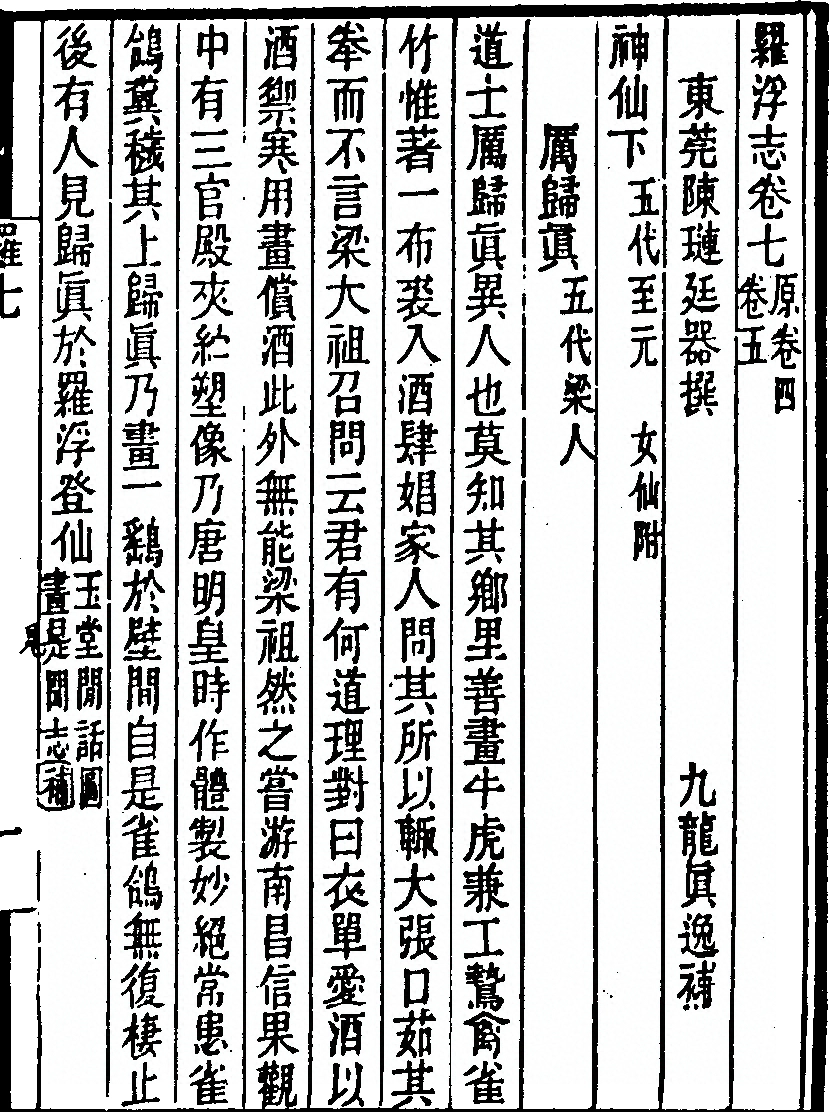 羅浮志卷七原卷四卷五
東莞陳璉廷器撰 九龍眞逸補
神仙下五代至元 女仙附
厲歸眞五代梁人
道士厲歸眞異人也莫知其鄉里善畫牛虎兼工鷙禽雀
竹惟著一布裘入酒肆娼家人問其所以輙大張口茹其
拳而不言梁大祖召問云君有何道理對曰衣單愛酒以
酒禦寒用畫償酒此外無能梁祖然之嘗游南昌信果觀
中有三官殿夾紵塑像乃唐明皇時作體製妙絕常患雀
鴿糞穢其上歸眞乃畫一鷂於壁間自是雀鴿無復棲止
後有人見歸眞於羅浮登仙玉堂閒話圖畫見聞志補
羅七
一